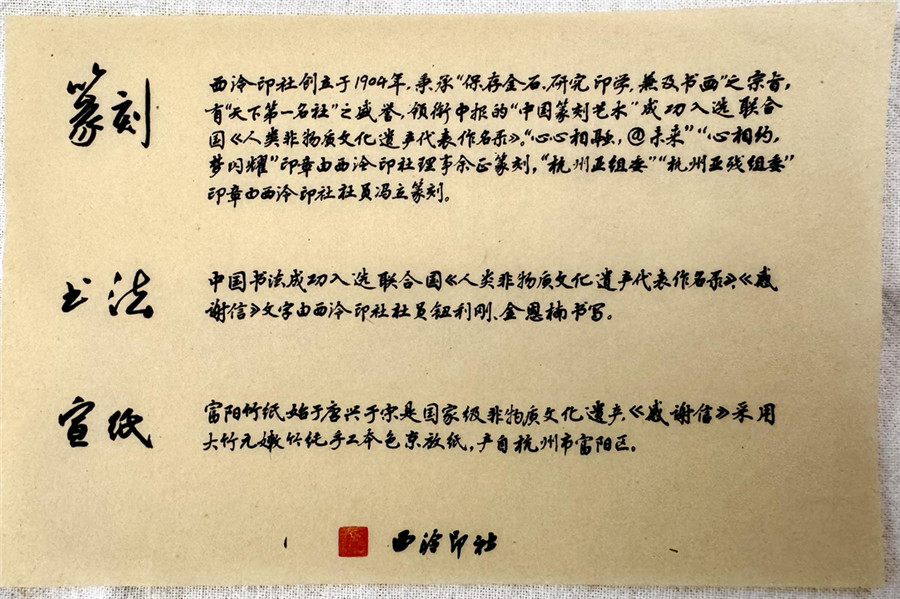 篆刻
西泠印社创立于1904年,秉承“保存金石、研究印学,兼及书画”之宗旨,
有“天下第一名社”之盛誉,领衔申报的“中国篆刻艺术”成功入选联合
国《人类非物质文化遗产代表作名录》。“心心相融,@未来”“心相约,
梦闪耀”印章由西泠印社理事余正篆刻,“杭州亚组委”“杭州亚残组委”
印章由西泠印社社员冯立篆刻。
书法
中国书法成功入选联合国《人类非物质文化遗产代表作名录》,《感
谢信》文字由西泠印社社员钮利刚、金恩楠书写。
宣纸
富阳竹纸始于唐兴于宋是国家级非物质文化遗产,《感谢信》采用
大竹元嫩竹纯手工本色京放纸,产自杭州市富阳区。
西泠印社